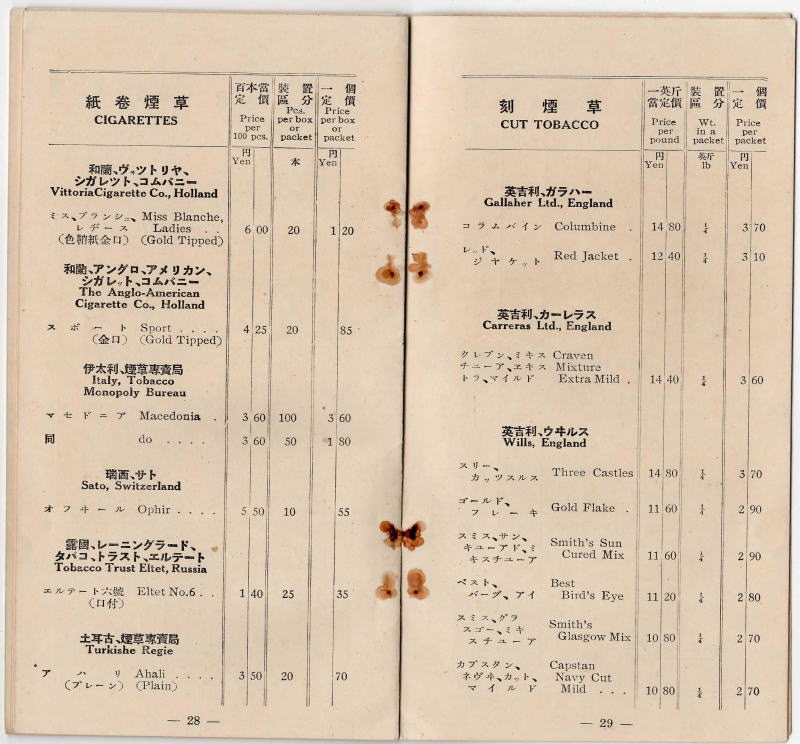 紙卷煙草
CIGARETTES
百本當
定價
Price
per
100 pcs.
裝置
區分
Pcs.
per box
or
packet
一個
定價
Price
per box
or
packet
円
Yen
本
円
Yen
和蘭、ヴィツトリヤ、
シガレツト、コムパニー
VittoriaCigarette Co., Holland
ミス、ブランシュ、 Miss Blanche,
レヂース Ladies . . 6 00 20 1 20
(色鞘紙金口) (Gold Tipped)
和蘭、アングロ、アメリカン、
シガレット、コムパニー
The Anglo-American
Cigarette Co., Holland
スポート Sport . . . . 4 25 20 85
(金口) (Gold Tipped)
伊太利、煙草專賣局
Italy, Tobacco
Monopoly Bureau
マセドニア Macedonia . 3 60 100 3 60
同 do . . . . 3 60 50 1 80
瑞西、サト
Sato, Switzerland
オフヰール Ophir . . . . 5 50 10 55
露國、レーニングラード、
タバコ、トラスト、エルテート
Tobacco Trust Eltet, Russia
エルテート六號 Eltet No.6 . . 1 40 25 35
(口付)
土耳古、煙草專賣局
Turkishe Regie
アハリ Ahali . . . . 3 50 20 70
(プレーン) (Plain)
— 28 —
刻煙草
CUT TOBACCO
一英斤
當定價
Price
per
pound
裝置
區分
Wt.
in a
packet
一個
定價
Price
per
packet
円
Yen
英斤
lb
円
Yen
英吉利、ガラハー
Gallaher Ltd., England
コラムバイン Columbine . 14 80 ¼ 3 70
レッド、
ジャケット Red Jacket . 12 40 ¼ 3 10
英吉利、カーレラス
Carreras Ltd., England
クレブン、ミキス Craven
チューア、エキス Mixture
トラ、マイルド Extra Mild . 14 40 ¼ 3 60
英吉利、ウヰルス
Wills, England
スリー、
カッツスルス Three Castles 14 80 ¼ 3 70
ゴールド、
フレーキ Gold Flake . 11 60 ¼ 2 90
スミス、サン、 Smith's Sun
キューアド、ミ Cured Mix 11 60 ¼ 2 90
キスチューア
ベスト、 Best
バーヅ、アイ Bird's Eye 11 20 ¼ 2 80
スミス、グラ Smith's
スゴー、ミキ Glasgow Mix 10 80 ¼ 2 70
スチューア
カプスタン、 Capstan
ネヴヰ、カット、 Navy Cut
マイルド Mild . . . 10 80 ¼ 2 70
— 29 —